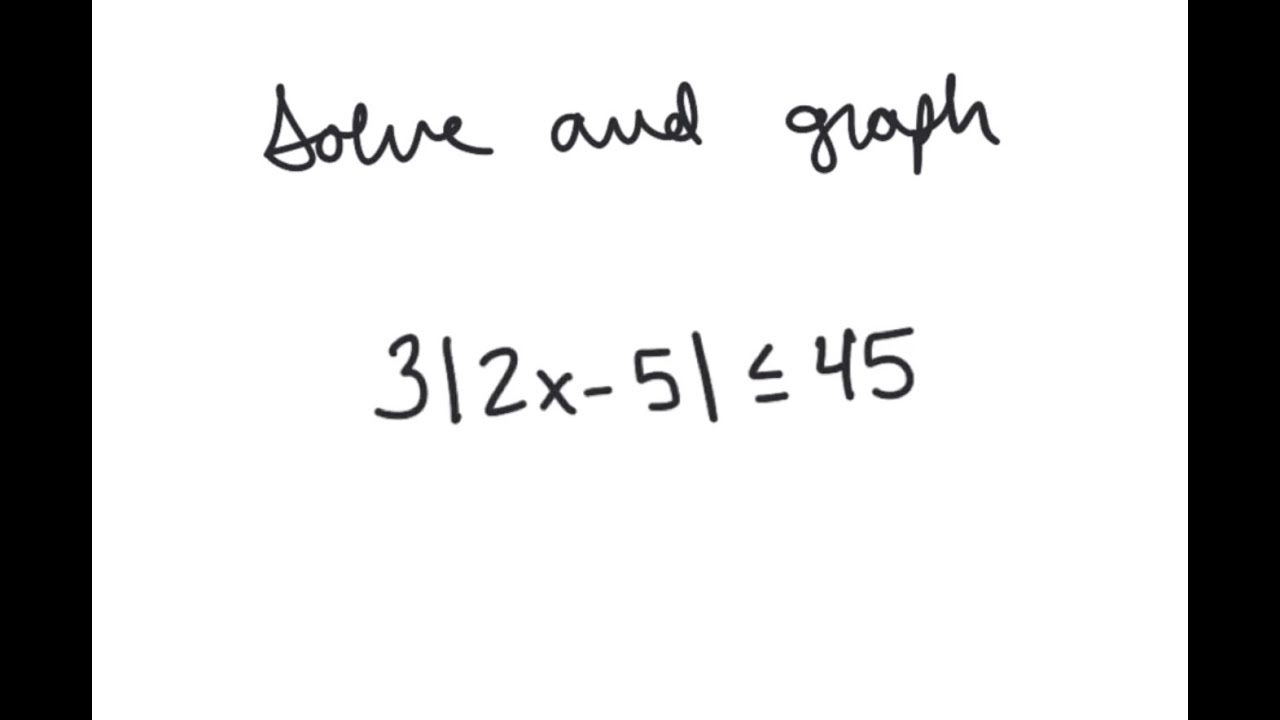 Solve and graph
3|2x-5| ≤ 45